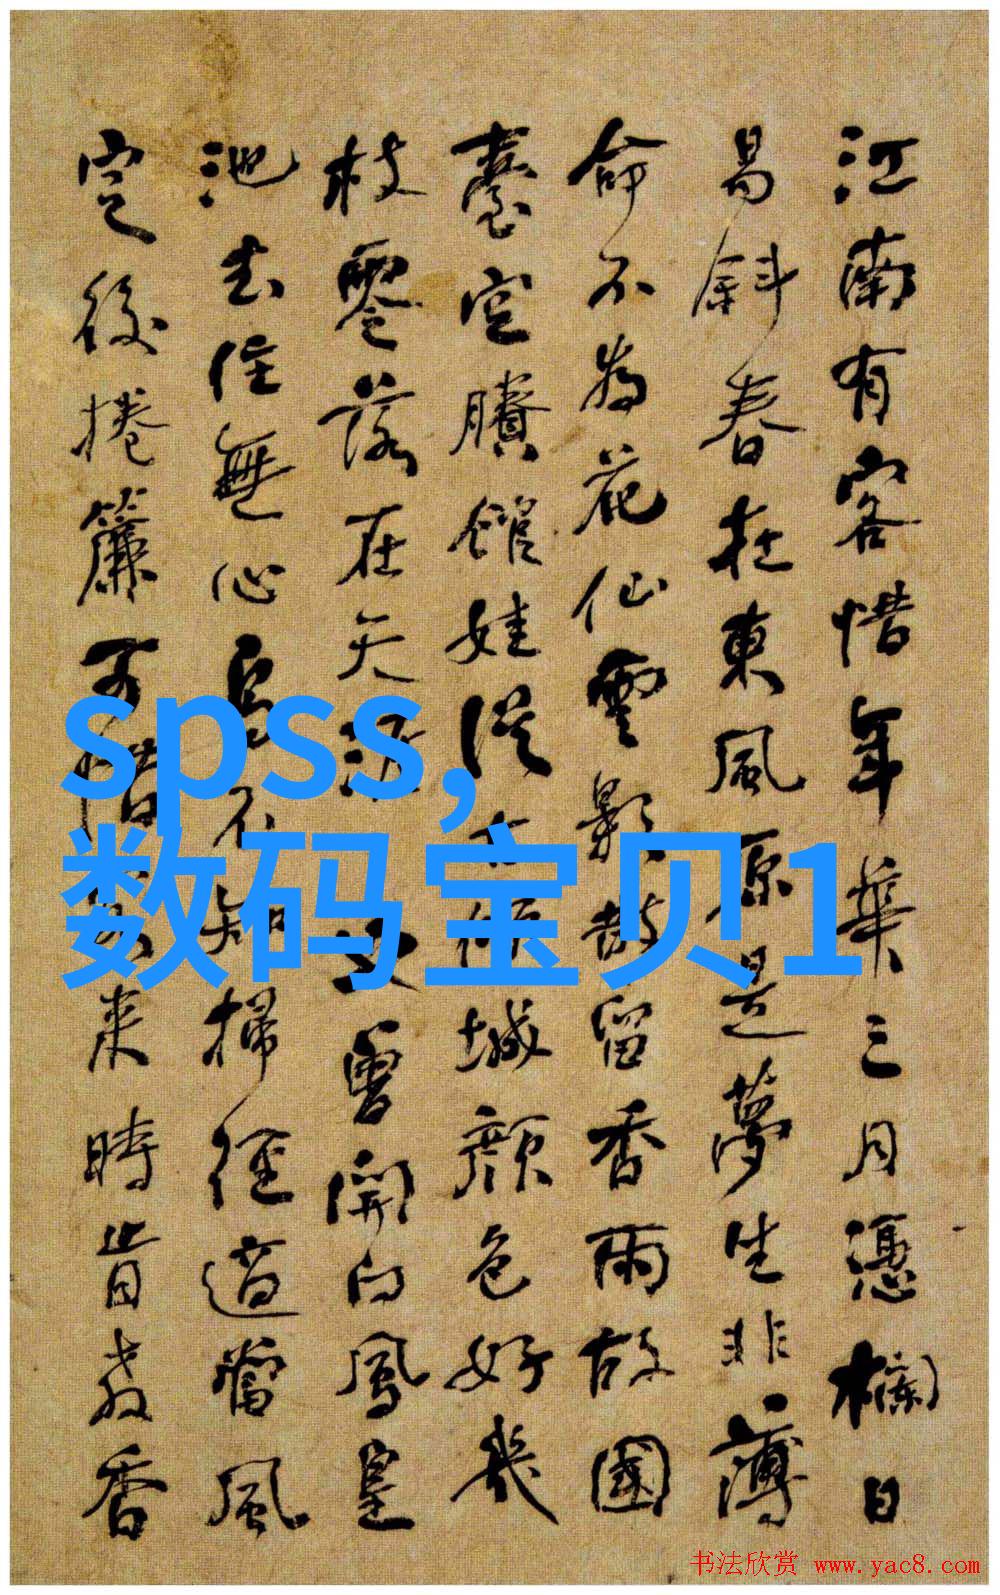 江南有客惜年華三月憑欄日
易斜春在東風原是夢生非薄
命不為花仙雲影散留香雨故國
臺空賸館娃從古傾城顏色好幾
枝零落在天涯又曾開向鳳皇
池去住無心不知掃徑適當風
定後捲簾可惜客來時肯教香
spss,
数码宝贝1
书法欣赏 www.yac8.com